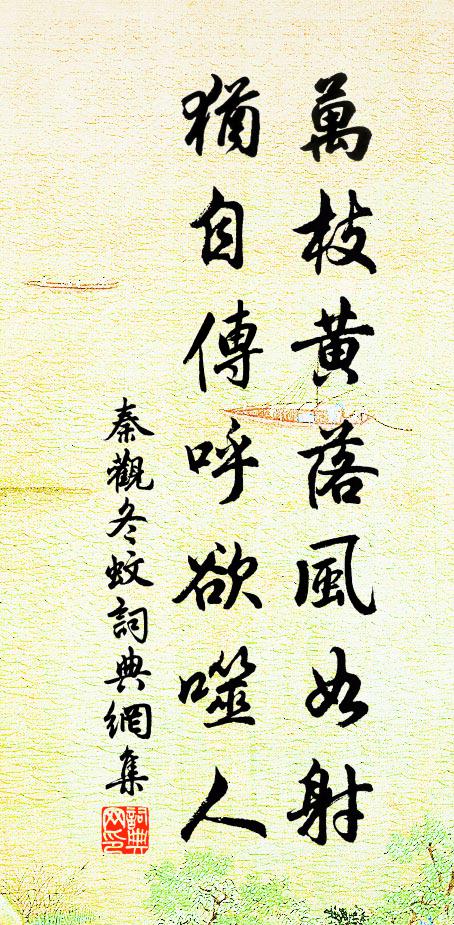 萬枝黄落風如射
猶自傳呼欲噬人
秦觀冬蚊詞典網集
詞典網印